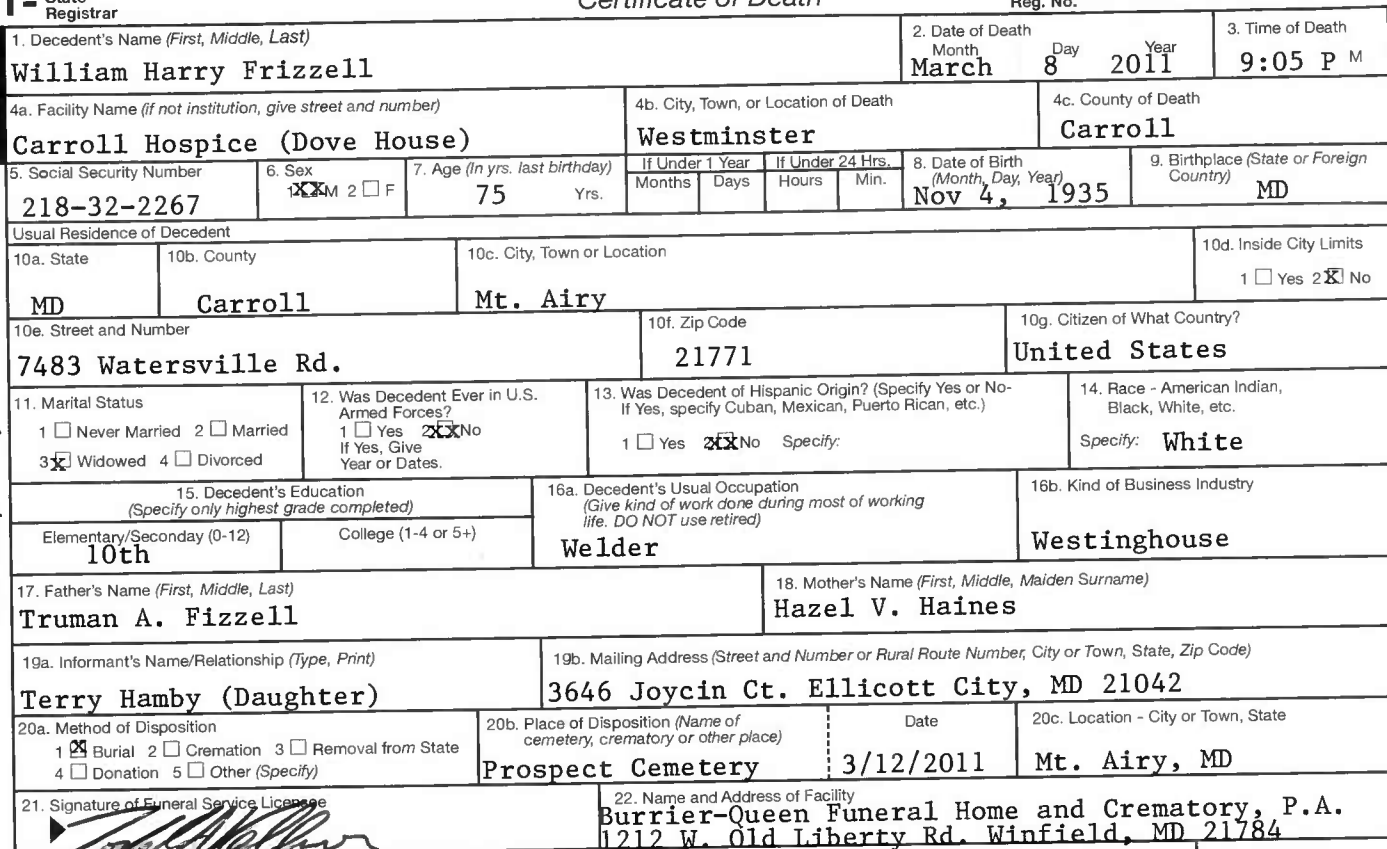 State
Registrar
Certificate of Death
Reg. No.
1. Decedent's Name (First, Middle, Last)
William Harry Frizzell
2. Date of Death
Month Day Year
March 8 2011
3. Time of Death
9:05 P M
4a. Facility Name (if not institution, give street and number)
Carroll Hospice (Dove House)
4b. City, Town, or Location of Death
Westminster
4c. County of Death
Carroll
5. Social Security Number
218-32-2267
6. Sex
1 XX M 2 ☐ F
7. Age (In yrs. last birthday)
75 Yrs.
If Under 1 Year
Months Days
If Under 24 Hrs.
Hours Min.
8. Date of Birth
(Month, Day, Year)
Nov 4, 1935
9. Birthplace (State or Foreign
Country)
MD
Usual Residence of Decedent
10a. State
MD
10b. County
Carroll
10c. City, Town or Location
Mt. Airy
10d. Inside City Limits
1 ☐ Yes 2 X No
10e. Street and Number
7483 Watersville Rd.
10f. Zip Code
21771
10g. Citizen of What Country?
United States
11. Marital Status
1 ☐ Never Married 2 ☐ Married
3 X Widowed 4 ☐ Divorced
12. Was Decedent Ever in U.S.
Armed Forces?
1 ☐ Yes 2 XX No
If Yes, Give
Year or Dates.
13. Was Decedent of Hispanic Origin? (Specify Yes or No-
If Yes, specify Cuban, Mexican, Puerto Rican, etc.)
1 ☐ Yes 2 XX No Specify:
14. Race - American Indian,
Black, White, etc.
Specify: White
15. Decedent's Education
(Specify only highest grade completed)
Elementary/Seconday (0-12)
10th
College (1-4 or 5+)
16a. Decedent's Usual Occupation
(Give kind of work done during most of working
life. DO NOT use retired)
Welder
16b. Kind of Business Industry
Westinghouse
17. Father's Name (First, Middle, Last)
Truman A. Fizzell
18. Mother's Name (First, Middle, Maiden Surname)
Hazel V. Haines
19a. Informant's Name/Relationship (Type, Print)
Terry Hamby (Daughter)
19b. Mailing Address (Street and Number or Rural Route Number, City or Town, State, Zip Code)
3646 Joycin Ct. Ellicott City, MD 21042
20a. Method of Disposition
1 X Burial 2 ☐ Cremation 3 ☐ Removal from State
4 ☐ Donation 5 ☐ Other (Specify)
20b. Place of Disposition (Name of
cemetery, crematory or other place)
Prospect Cemetery
Date
3/12/2011
20c. Location - City or Town, State
Mt. Airy, MD
21. Signature of Funeral Service Licensee
22. Name and Address of Facility
Burrier-Queen Funeral Home and Crematory, P.A.
1212 W. Old Liberty Rd. Winfield, MD 21784